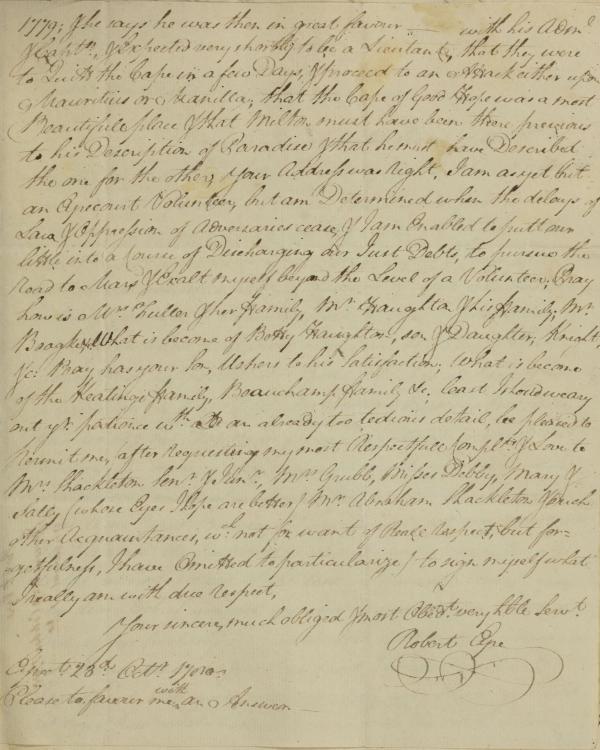 1779; & he says he was then in great favour with his Adml
& Captn, & expected very shortly to be a Lieutant, that they were
to Quitt the Cape in a few Days, & proceed to an Attack either upon
Mauritius or Manilla, that the Cape of Good Hope was a most
Beautifull place & that Milton must have been there previous
to his Description of Paradise & that he must have Described
the one for the other; Your Address was Right, I am as yet but
an Volunteer, but am Determined when the delays of
Law & Oppression of Adversaries cease, & I am Enabled to putt our
little into a Course of Discharging our Just Debts, to pursue the
Road to Mars & Exalt myself beyond the Level of a Volunteer. Pray
how is Mrs Fuller & her Family, Mr Haughton & his Family, Mr
What is become of Betty Haughton, son & Daughter, Knight,
&c. Pray has your Son Ushers to his Satisfaction, What is become
of the Family, Beauchamp Family &c, least I shoud weary
out yr patience wth an already too tedious detail, be pleased to
permit me, after requesting my most Respectfull Complts & Love to
Mrs Shackleton Senr & Junr, Mrs Grubb, Misses Debby, Mary &
Sally (whose Eyes I hope are better) Mr Abraham Shackleton & such
other Acquaintances, wch not for want of Reale Respect, but for=
getfulness, I have Omitted to particularize) to sign myself what
I really am with due respect,
Your sincere, much obliged & most Obedt very hble Servt
Robert
23d Octr
Please to favour me with an Answer